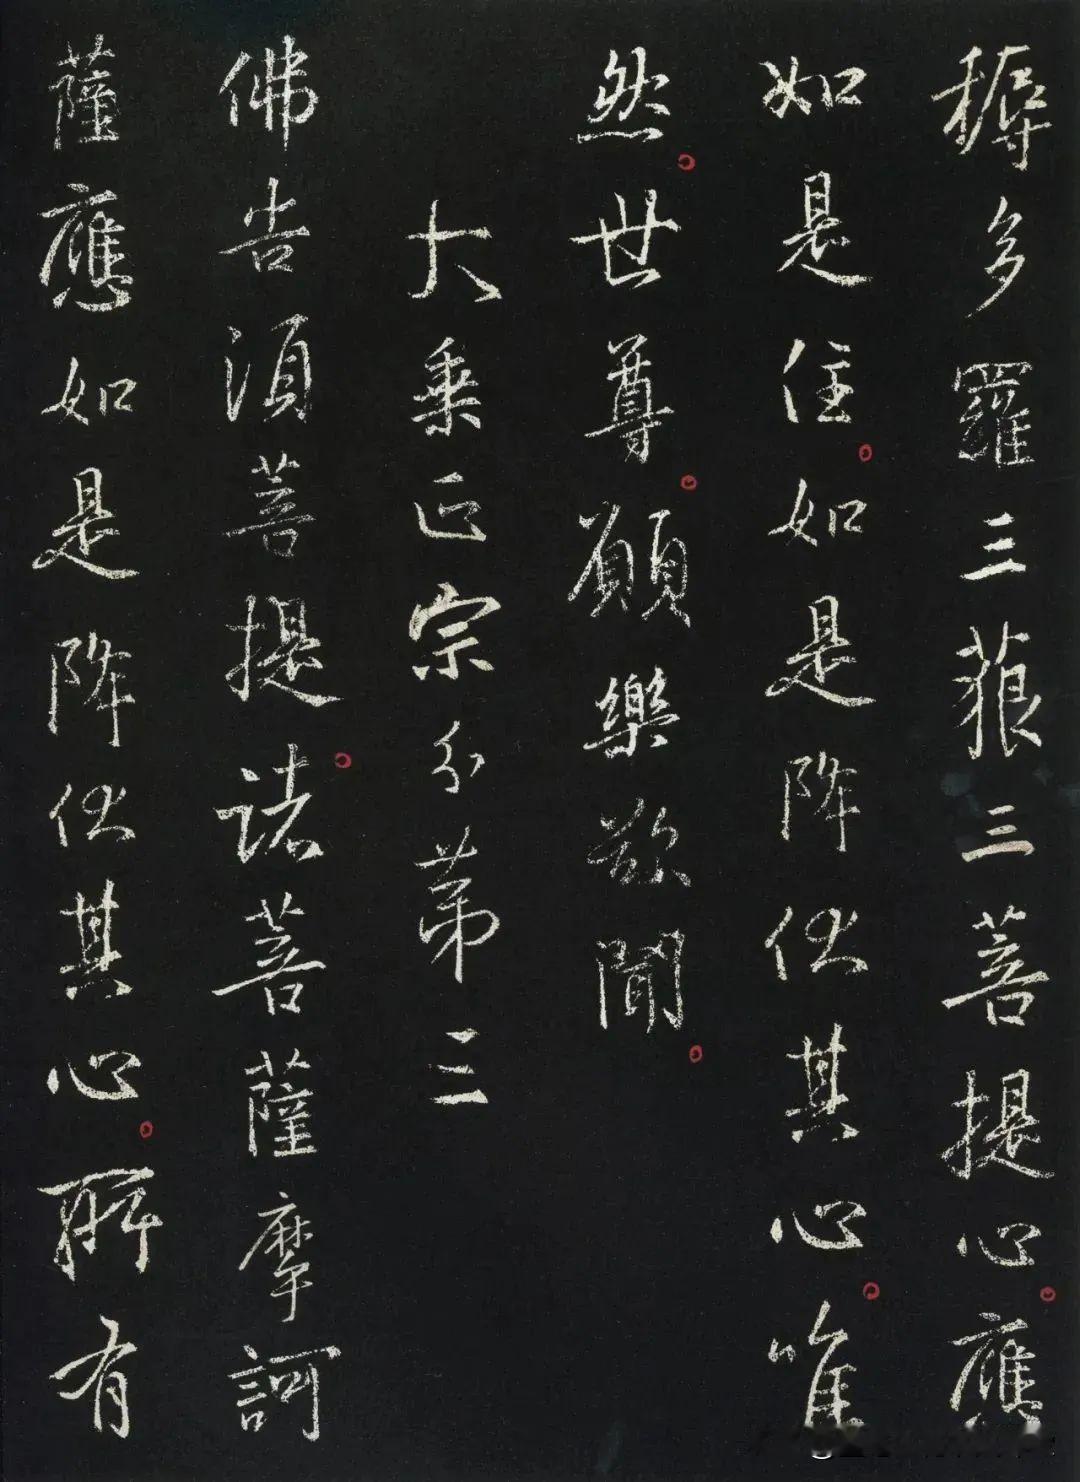 耨多羅三藐三菩提心。應
如是住。如是降伏其心。唯
然。世尊。願樂欲聞。
大乘正宗分第三
佛告須菩提。諸菩薩摩訶
薩應如是降伏其心。所有